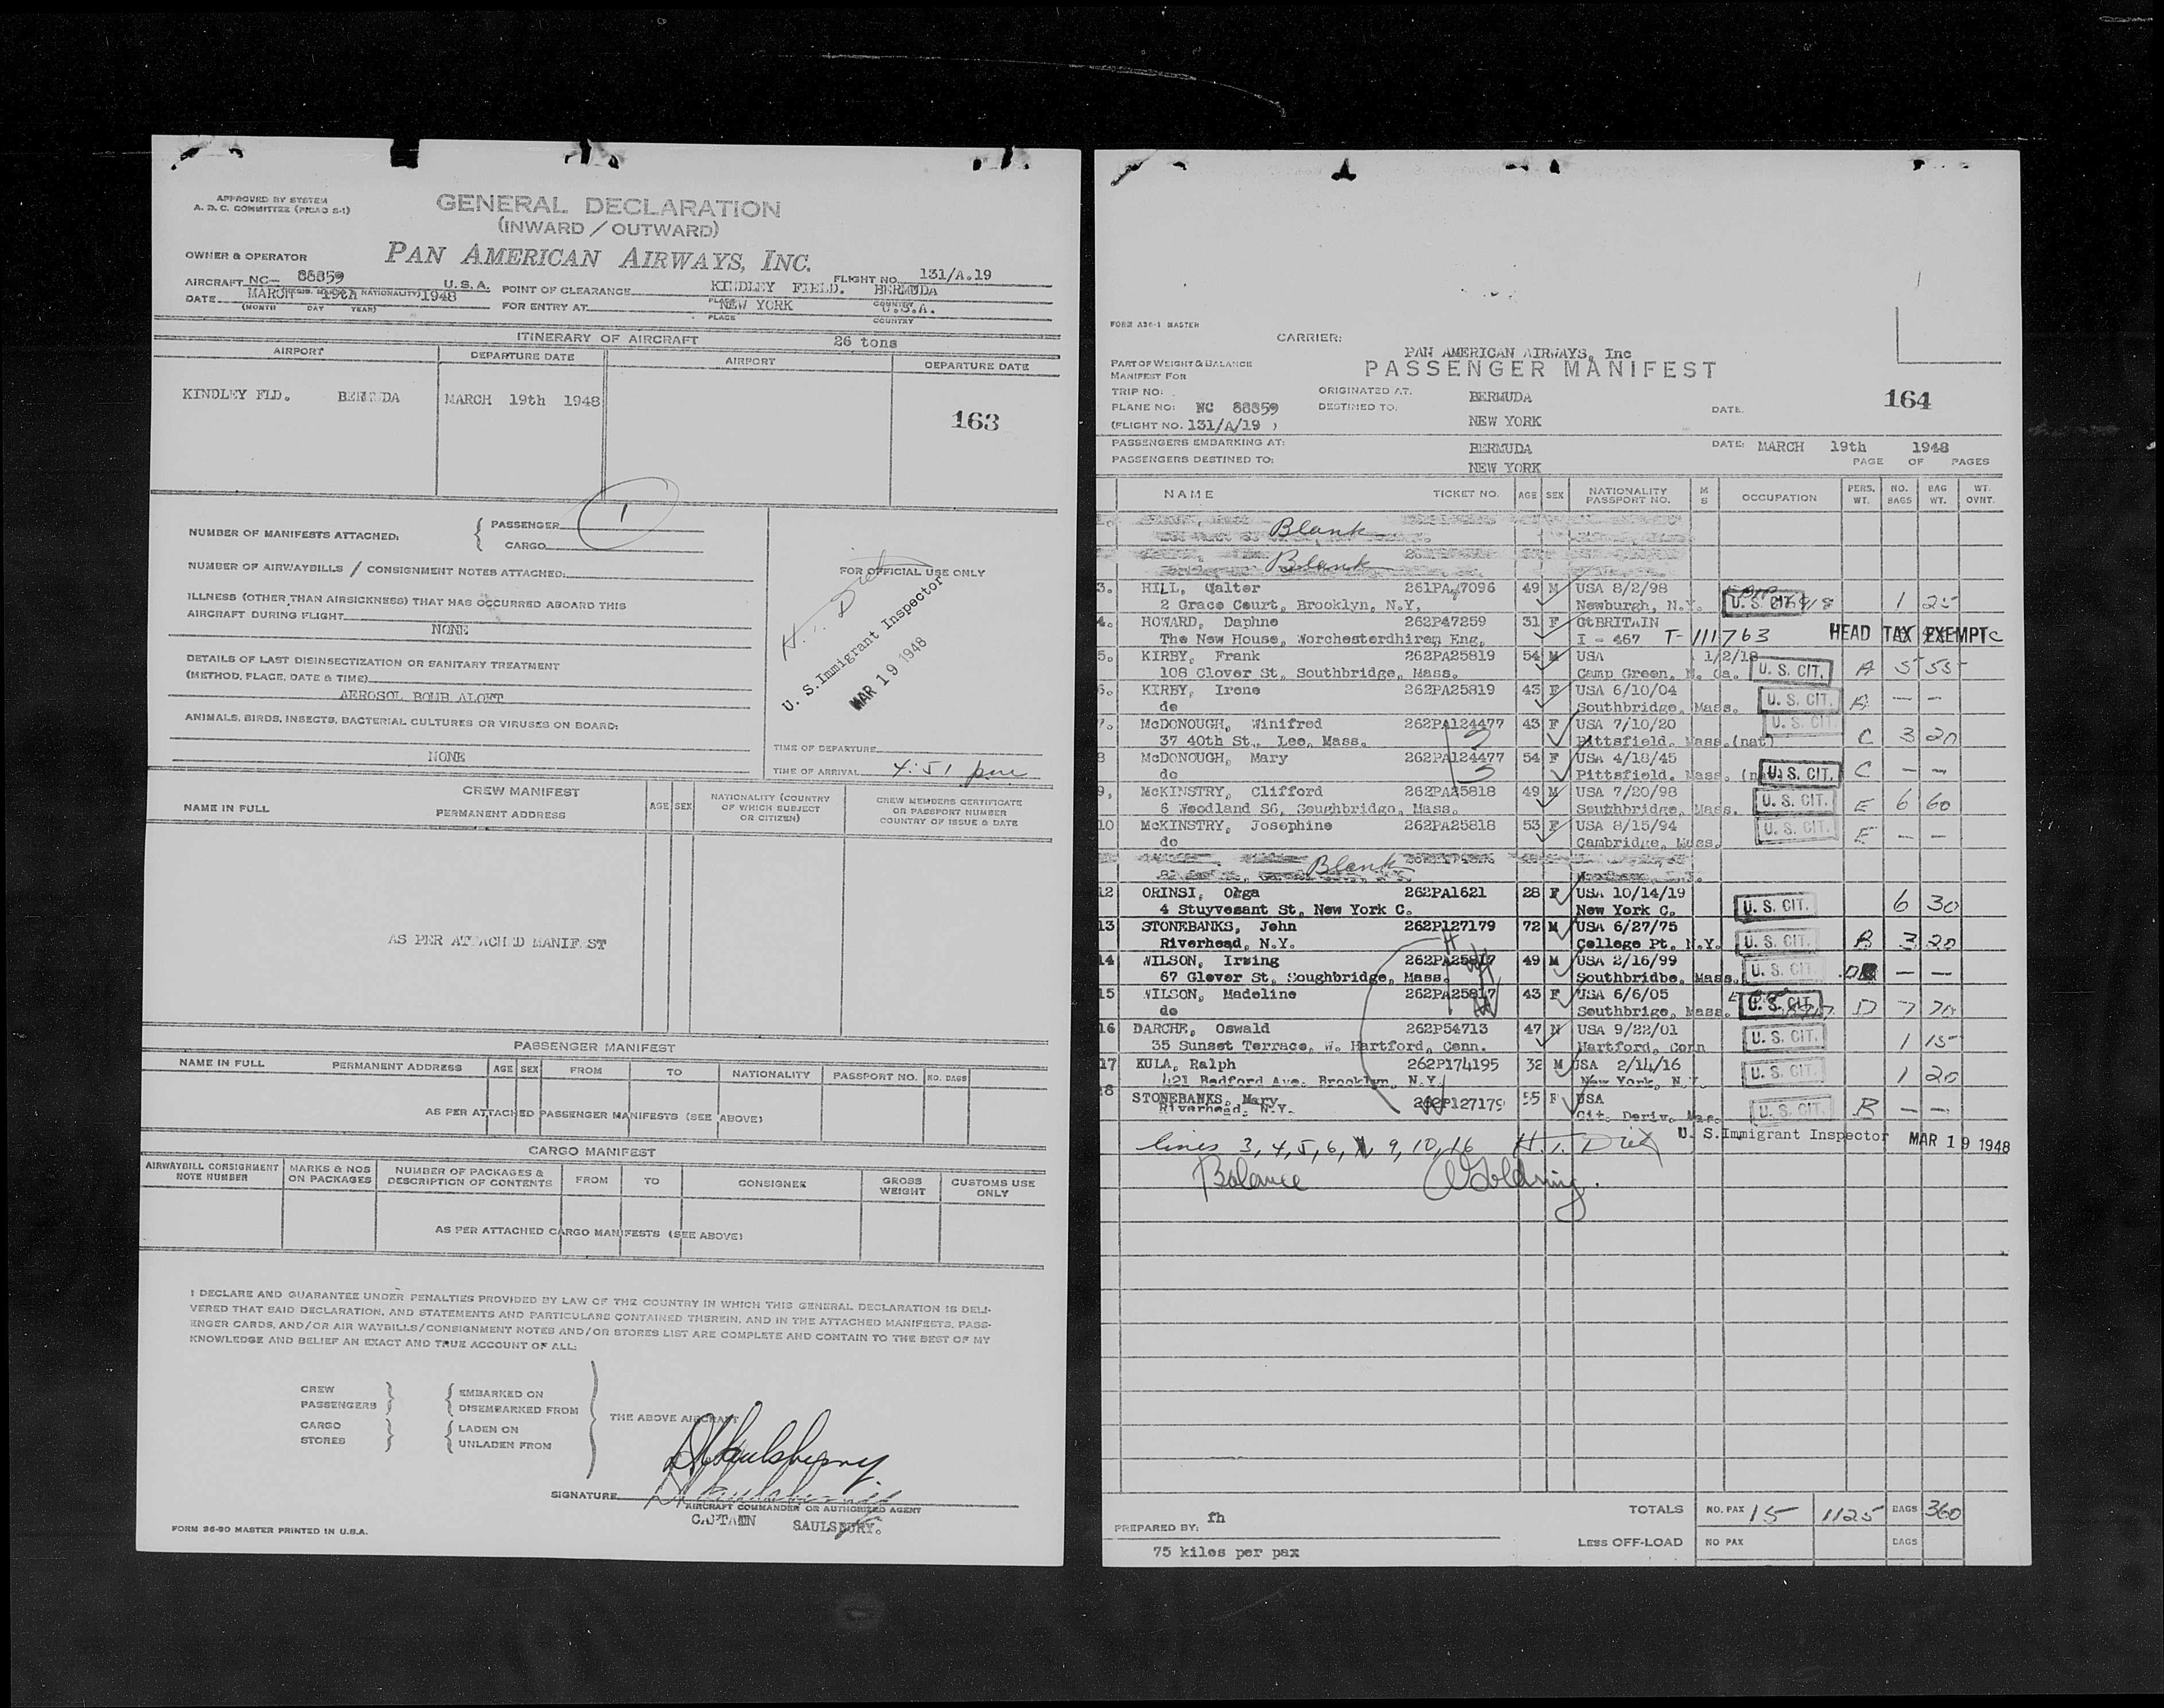 APPROVED BY SYSTEM
A. D. C. COMMITTEE (PICAO S-1)
GENERAL DECLARATION
(INWARD / OUTWARD)
OWNER & OPERATOR
PAN AMERICAN AIRWAYS, INC.
AIRCRAFT NC- 88859 U.S.A. FLIGHT NO. 131/A.19
DATE MARCH 19th 1948
(MONTH DAY YEAR)
POINT OF CLEARANCE KINDLEY FIELD. BERMUDA
PLACE COUNTRY
FOR ENTRY AT NEW YORK U.S.A.
PLACE COUNTRY
ITINERARY OF AIRCRAFT 26 tons
AIRPORT DEPARTURE DATE AIRPORT DEPARTURE DATE
KINDLEY FLD. BERMUDA MARCH 19th 1948
163
NUMBER OF MANIFESTS ATTACHED: PASSENGER 1
CARGO
NUMBER OF AIRWAYBILLS / CONSIGNMENT NOTES ATTACHED:
ILLNESS (OTHER THAN AIRSICKNESS) THAT HAS OCCURRED ABOARD THIS
AIRCRAFT DURING FLIGHT
NONE
DETAILS OF LAST DISINSECTIZATION OR SANITARY TREATMENT
(METHOD, PLACE, DATE & TIME)
AEROSOL BOMB ALOFT
ANIMALS, BIRDS, INSECTS, BACTERIAL CULTURES OR VIRUSES ON BOARD:
NONE
FOR OFFICIAL USE ONLY
U. S. Immigrant Inspector
MAR 19 1948
TIME OF DEPARTURE
TIME OF ARRIVAL 4:51 pm
CREW MANIFEST
NAME IN FULL PERMANENT ADDRESS AGE SEX NATIONALITY (COUNTRY OF WHICH SUBJECT OR CITIZEN) CREW MEMBERS CERTIFICATE OR PASSPORT NUMBER COUNTRY OF ISSUE & DATE
AS PER ATTACHED MANIFEST
PASSENGER MANIFEST
NAME IN FULL PERMANENT ADDRESS AGE SEX FROM TO NATIONALITY PASSPORT NO. NO. BAGS
AS PER ATTACHED PASSENGER MANIFESTS (SEE ABOVE)
CARGO MANIFEST
AIRWAYBILL CONSIGNMENT NOTE NUMBER MARKS & NOS ON PACKAGES NUMBER OF PACKAGES & DESCRIPTION OF CONTENTS FROM TO CONSIGNEE GROSS WEIGHT CUSTOMS USE ONLY
AS PER ATTACHED CARGO MANIFESTS (SEE ABOVE)
I DECLARE AND GUARANTEE UNDER PENALTIES PROVIDED BY LAW OF THE COUNTRY IN WHICH THIS GENERAL DECLARATION IS DELI-
VERED THAT SAID DECLARATION, AND STATEMENTS AND PARTICULARS CONTAINED THEREIN, AND IN THE ATTACHED MANIFESTS, PASS-
ENGER CARDS, AND/OR AIR WAYBILLS/CONSIGNMENT NOTES AND/OR STORES LIST ARE COMPLETE AND CONTAIN TO THE BEST OF MY
KNOWLEDGE AND BELIEF AN EXACT AND TRUE ACCOUNT OF ALL:
CREW
PASSENGERS
CARGO
STORES
EMBARKED ON
DISEMBARKED FROM
LADEN ON
UNLADEN FROM
THE ABOVE AIRCRAFT
SIGNATURE
AIRCRAFT COMMANDER OR AUTHORIZED AGENT
CAPTAIN SAULSBURY.
FORM 36-90 MASTER PRINTED IN U.S.A.
FORM A36-1 MASTER
CARRIER:
PAN AMERICAN AIRWAYS, Inc
PASSENGER MANIFEST
PART OF WEIGHT & BALANCE
MANIFEST FOR
TRIP NO:
PLANE NO: NC 88859
(FLIGHT NO. 131/A/19 )
ORIGINATED AT. BERMUDA
DESTINED TO: NEW YORK
DATE.
164
PASSENGERS EMBARKING AT: BERMUDA DATE: MARCH 19th 1948
PASSENGERS DESTINED TO: NEW YORK PAGE OF PAGES
NAME TICKET NO. AGE SEX NATIONALITY PASSPORT NO. M S OCCUPATION PERS. WT. NO. BAGS BAG WT. WT. OVHT.
Blank
Blank
3. HILL, Walter 261PA47096 49 M USA 8/2/98
2 Grace Court, Brooklyn, N.Y. Newburgh, N.Y. U. S. CIT. 1 25
4. HOWARD, Daphne 262P47259 31 F GtBRITAIN
The New House, Worchesterdhiren Eng. I - 467 T-111763 HEAD TAX EXEMPT C
5. KIRBY, Frank 262PA25819 54 M USA 1/2/18
108 Clover St, Southbridge, Mass. Camp Green, N. Ca. U. S. CIT. A 5 55
6. KIRBY, Irene 262PA25819 43 F USA 6/10/04
do Southbridge, Mass. U. S. CIT. A — —
7. McDONOUGH, Winifred 262PA124477 43 F USA 7/10/20
37 40th St., Lee, Mass. Pittsfield, Mass. (nat) U. S. CIT. C 3 20
8 McDONOUGH, Mary 262PA124477 54 F USA 4/18/45
do Pittsfield, Mass. (nat) U. S. CIT. C — —
9. McKINSTRY, Clifford 262PA25818 49 M USA 7/20/98
6 Woodland SG, Soughbridge, Mass. Southbridge, Mass. U. S. CIT. E 6 60
10 McKINSTRY, Josephine 262PA25818 53 F USA 8/15/94
do Cambridge, Mass. U. S. CIT. E — —
Blank
12 ORINSI, Olga 262PA1621 28 F USA 10/14/19
4 Stuyvesant St, New York C. New York C. U. S. CIT. 6 30
13 STONEBANKS, John 262P127179 72 M USA 6/27/75
Riverhead, N.Y. College Pt. N.Y. U. S. CIT. B 3 20
14 WILSON, Irwing 262PA25817 49 M USA 2/16/99
67 Glover St, Soughbridge, Mass. Southbridbe, Mass. U. S. CIT. D — —
15 WILSON, Madeline 262PA25817 43 F USA 6/6/05
do Southbrige, Mass. U. S. CIT. D 7 70
16 DARCHE, Oswald 262P54713 47 M USA 9/22/01
35 Sunset Terrace, W. Hartford, Conn. Hartford, Conn U. S. CIT. 1 15
17 KULA, Ralph 262P174195 32 M USA 2/14/16
421 Bedford Ave. Brooklyn, N.Y. New York, N.Y. U. S. CIT. 1 20
18 STONEBANKS, Mary 262P127179 55 F USA
Riverhead, N.Y. Cit. Deriv. Mar. U. S. CIT. B — —
lines 3, 4, 5, 6, 9, 10, 16 U. S. Immigrant Inspector MAR 19 1948
Balance
TOTALS NO. PAX 15 1125 BAGS 360
PREPARED BY: fh
LESS OFF-LOAD NO PAX BAGS
75 kilos per pax